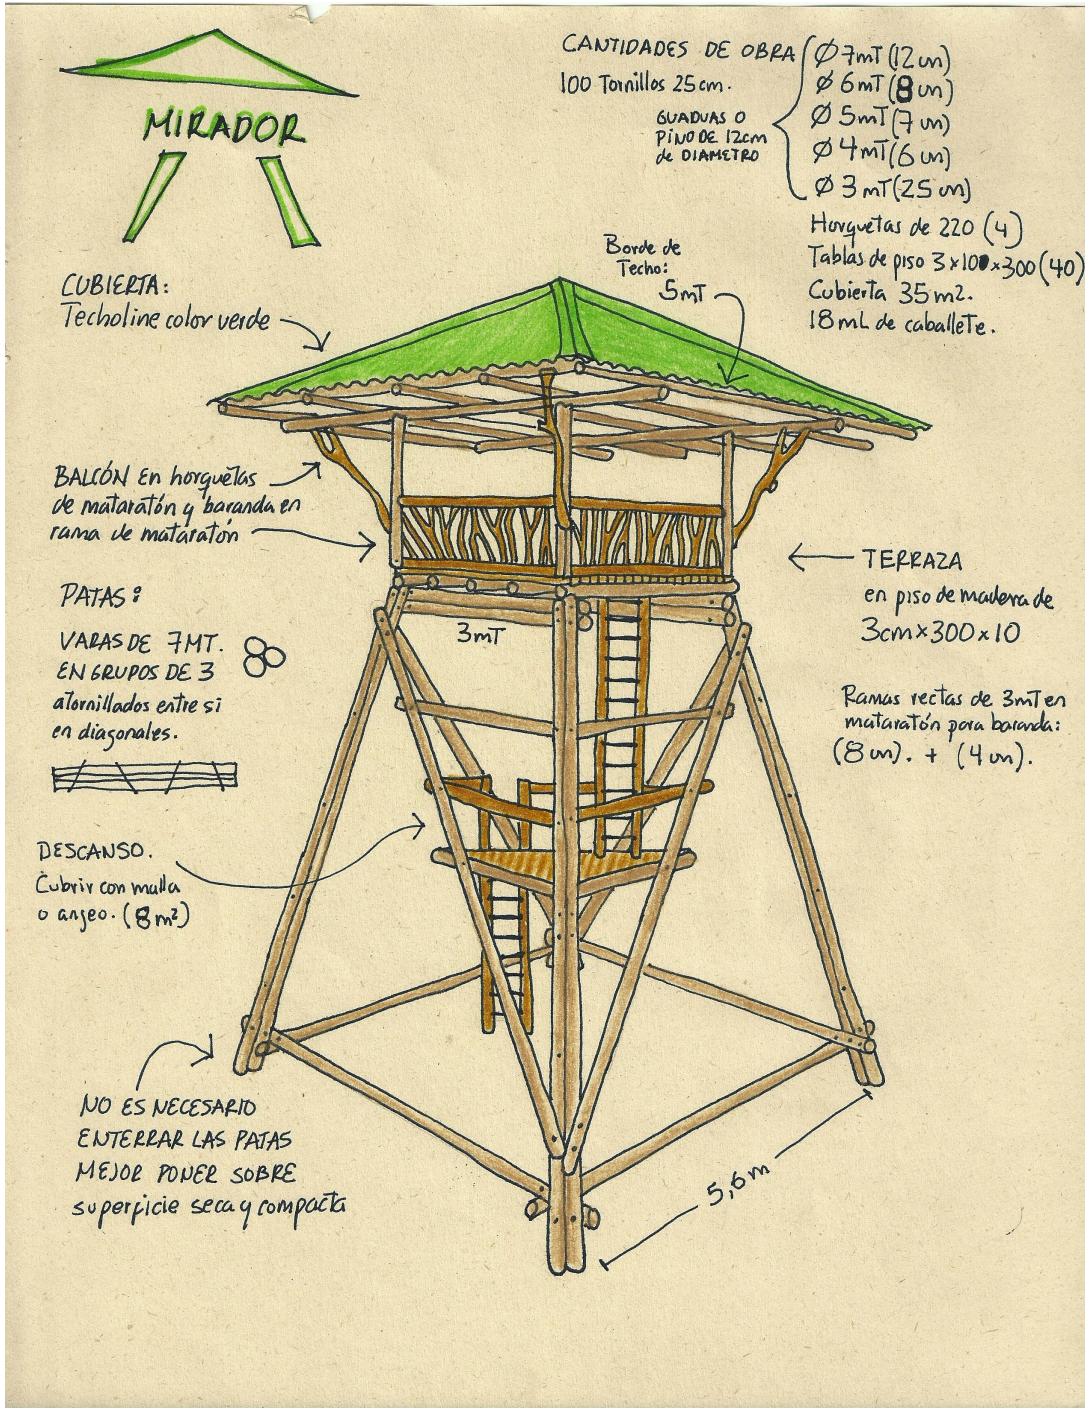 MIRADOR
CANTIDADES DE OBRA
100 Tornillos 25cm.
GUADUAS O
PINO DE 12cm
de DIAMETRO
Ø 7mT (12 un)
Ø 6mT (8 un)
Ø 5mT (7 un)
Ø 4mT (6 un)
Ø 3mT (25 un)
Horquetas de 220 (4)
Tablas de piso 3x10x300 (40)
Cubierta 35 m2.
18 mL de caballete.
Borde de
Techo:
5mT
CUBIERTA:
Techoline color verde
BALCÓN en horquetas
de mataratón y baranda en
rama de mataratón
TERRAZA
en piso de madera de
3cmx300x10
PATAS:
VARAS DE 7MT.
EN GRUPOS DE 3
atornillados entre si
en diagonales.
3mT
Ramas rectas de 3mT en
mataratón para baranda:
(8 un). + (4 un).
DESCANSO.
Cubrir con malla
o anjeo. (8m²)
NO ES NECESARIO
ENTERRAR LAS PATAS
MEJOR PONER SOBRE
superficie seca y compacta
5,6m